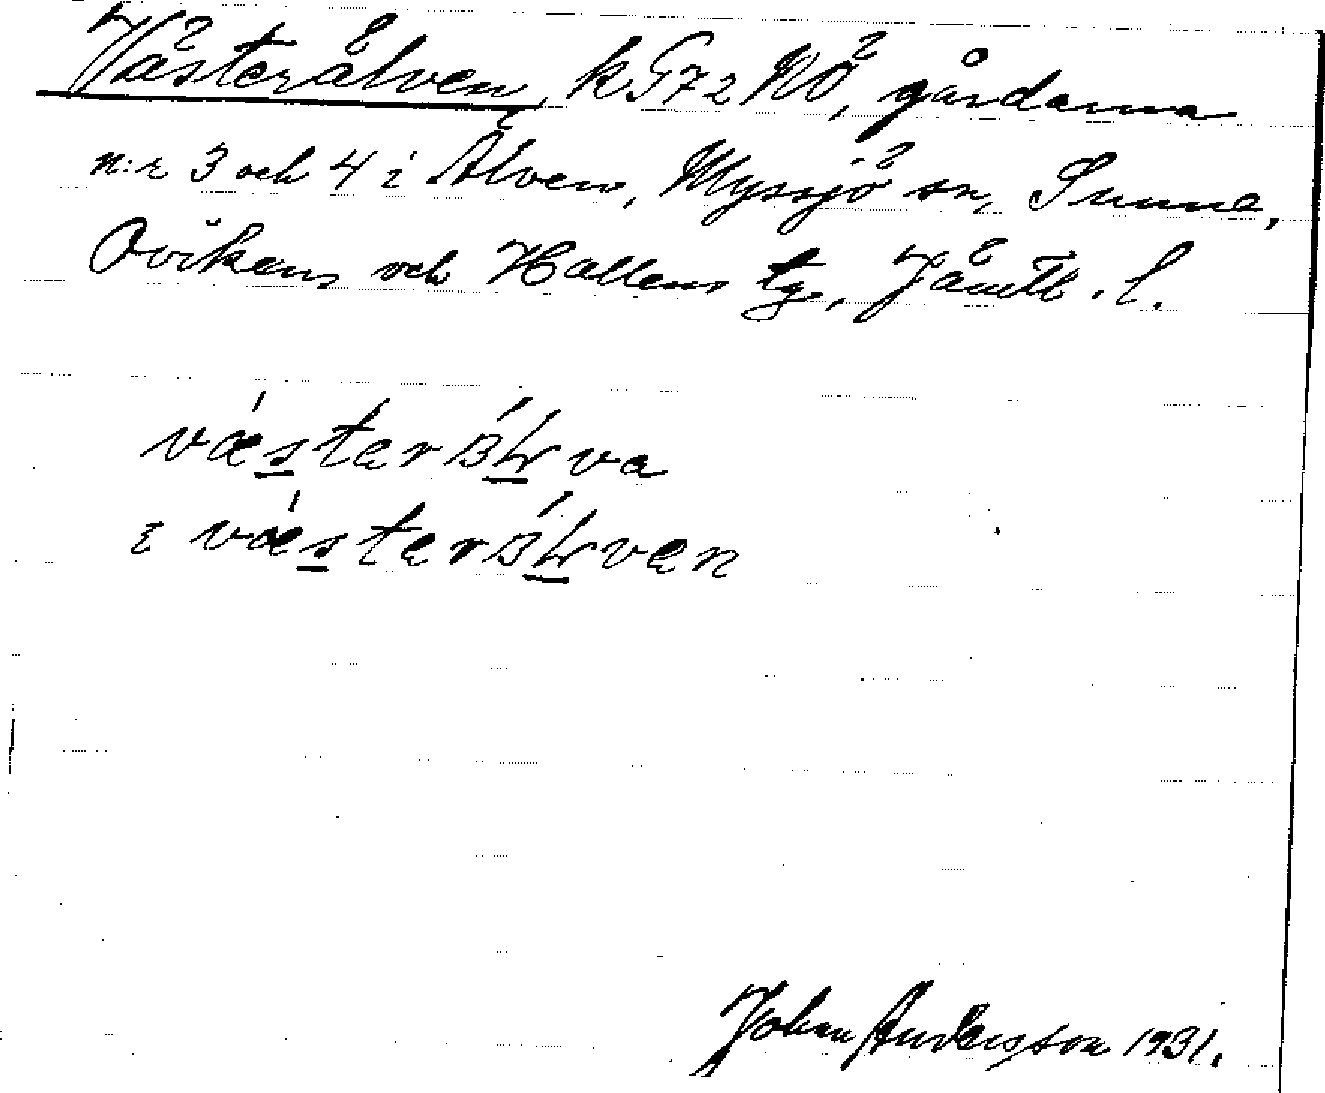 Västerälven, k 572 NÖ, gårdarna
n:r 3 och 4 i Älven, Myssjö sn, Sunne,
Ovikens och Hallens tg., Jämtl. l.
væstær va
ɩ væstær væn
Johan Andersson 1931.